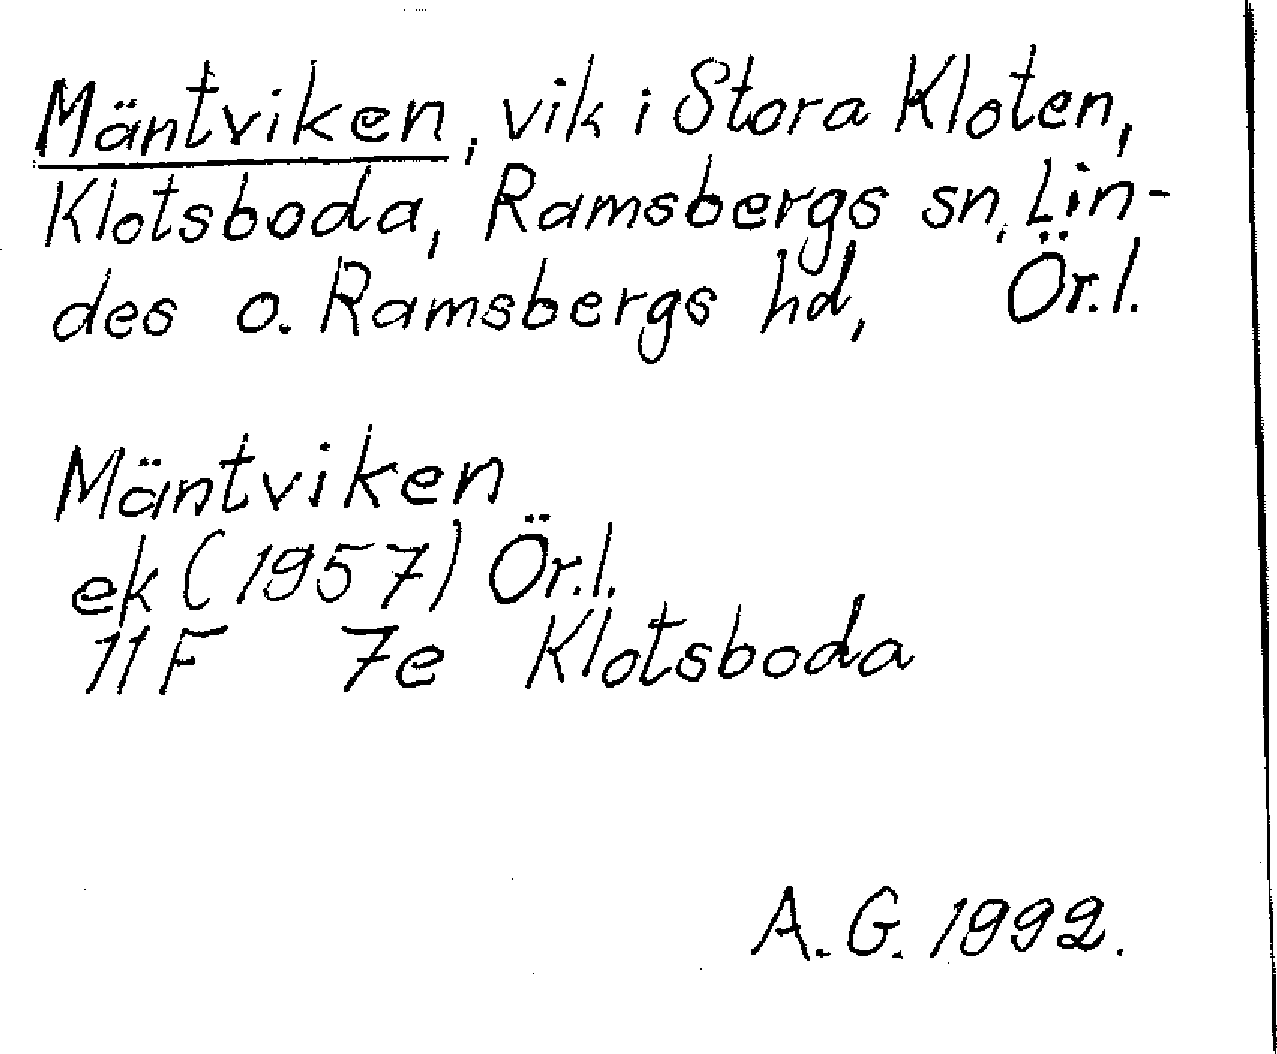 Mäntviken, vik i Stora Kloten,
Klotsboda, Ramsbergs sn, Lin-
des o. Ramsbergs hd, Ör.l.
Mäntviken
ek (1957) Ör.l.
11F 7e Klotsboda
A.G. 1992.